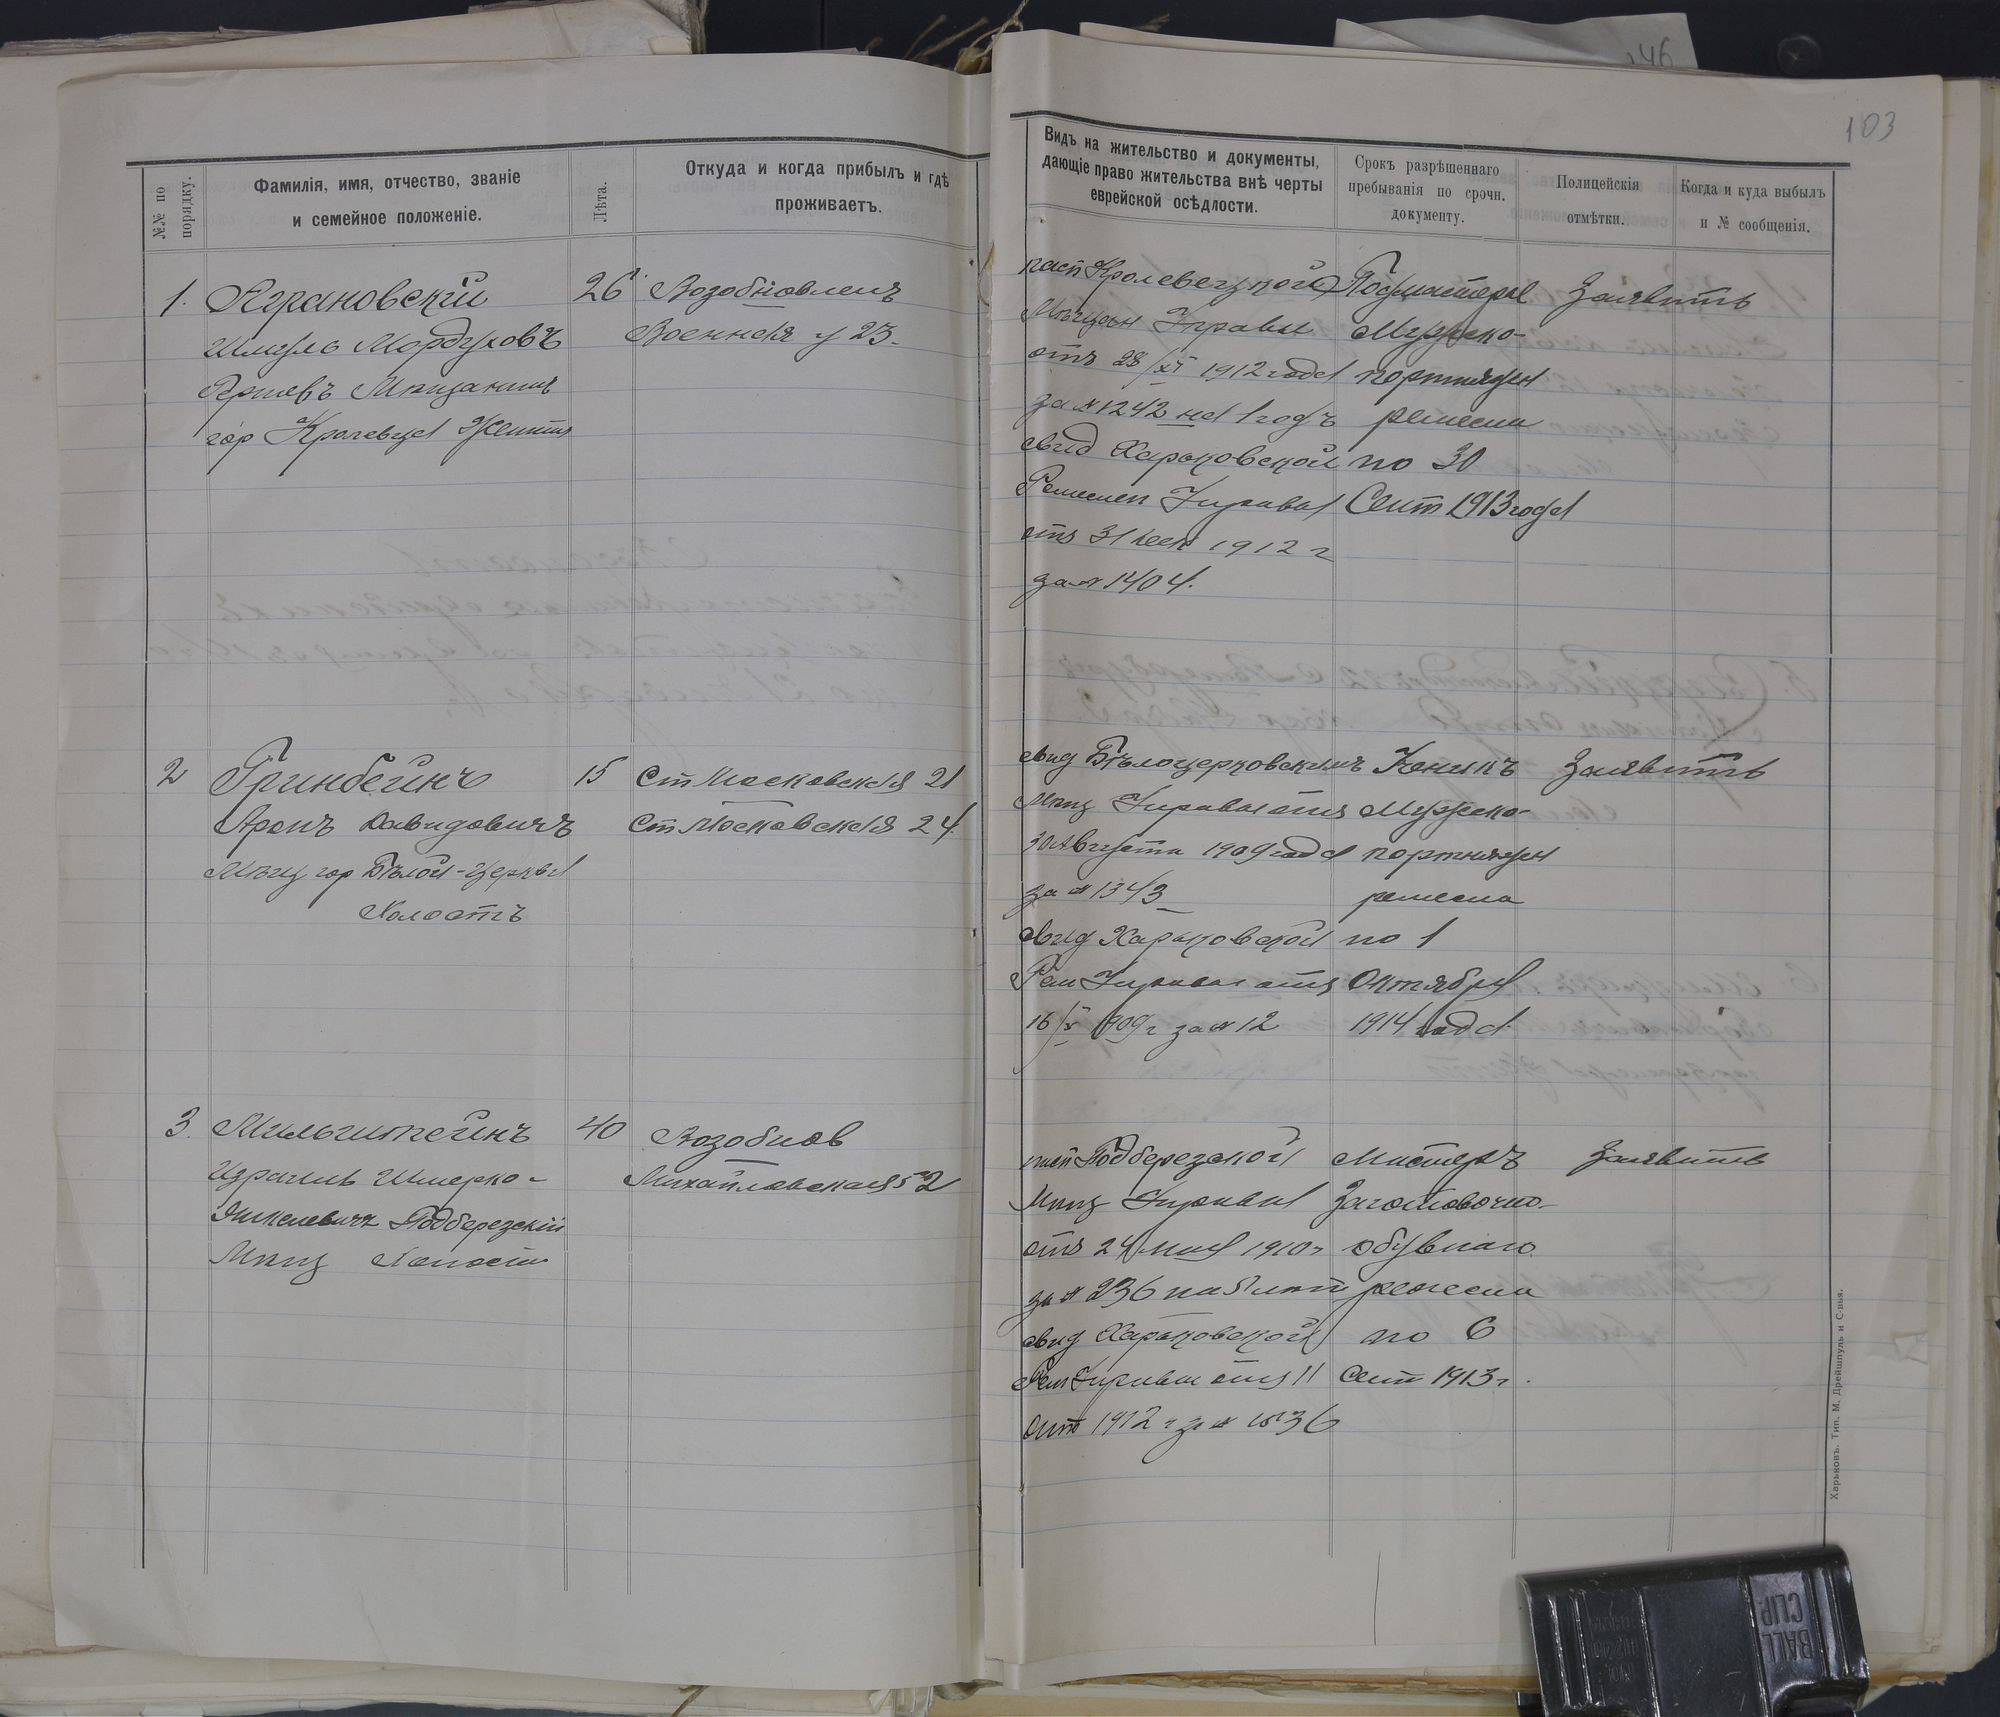 103
№№ по порядку.
Фамилія, имя, отчество, званіе
и семейное положеніе.
Лѣта.
Откуда и когда прибылъ и гдѣ
проживаетъ.
Видъ на жительство и документы,
дающіе право жительства внѣ черты
еврейской осѣдлости.
Срокъ разрѣшеннаго
пребыванія по срочн.
документу.
Полицейскія
отмѣтки.
Когда и куда выбылъ
и № сообщенія.
1.
Аграновскій
Шмуль Мордуховъ
Мѣщанинъ
гор Кролевца Женатъ
26
Возобновленъ
Военная у 23.
пасп Кролевецкой
Мѣщан Управы
отъ 28/XI 1912 года
за № 1242 на 1 годъ
свид Харьковской
Ремеслен Управы
отъ 31 1912 г
за № 1404.
Подмастерье
Мужско-
портняжн
ремесла
по 30
Сент 1913 года
Заявить
2
Гринбейнъ
Аронъ Давидовичъ
Мѣщ гор Бѣлой-Церкви
Холостъ
15
Ст Московская 21
Ст Московская 24.
свид Бѣлоцерковскимъ
Мѣщ Управы отъ
30 Августа 1909 года
за № 1343
свид Харьковской
Рем Управы отъ
16/X 1909 г за № 12
Ученикъ
Мужско-
портняжн
ремесла
по 1
Октября
1914 года
Заявить
3.
Мильштейнъ
Израиль Шмерко-
Янкелевичъ Подберезскій
Мѣщ Холостъ
40
Возобнов
Михайловская 52
пасп Подберезской
Мѣщ Управы
отъ 24 мая 1910 г
за № 236 на 5 лѣтъ
свид Харьковской
Рем Управы отъ 11
Окт 1912 г за № 1036
Мастеръ
Заготовочно-
обувнаго
ремесла
по 6
Сент 1913 г.
Заявить
Харьковъ. Тип. М. Дрейшпуль и С-вья.
BALL
CLIP